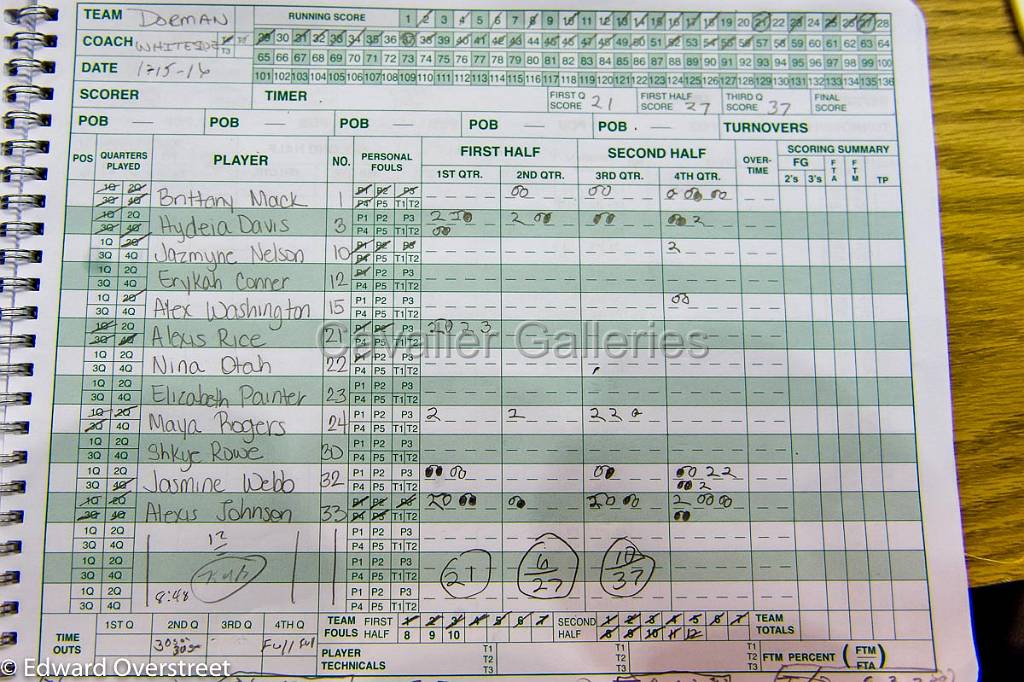 TEAM DORMAN RUNNING SCORE 1 2 3 4 5 6 7 8 9 10 11 12 13 14 15 16 17 18 19 20 21 22 23 24 25 26 27 28
COACH WHITESIDE 29 30 31 32 33 34 35 36 37 38 39 40 41 42 43 44 45 46 47 48 49 50 51 52 53 54 55 56 57 58 59 60 61 62 63 64
65 66 67 68 69 70 71 72 73 74 75 76 77 78 79 80 81 82 83 84 85 86 87 88 89 90 91 92 93 94 95 96 97 98 99 100
DATE 1-15-16 101 102 103 104 105 106 107 108 109 110 111 112 113 114 115 116 117 118 119 120 121 122 123 124 125 126 127 128 129 130 131 132 133 134 135 136
SCORER TIMER FIRST Q SCORE 21 FIRST HALF SCORE 27 THIRD Q SCORE 37 FINAL SCORE
POB — POB — POB — POB — POB . — TURNOVERS
POS QUARTERS PLAYED PLAYER NO. PERSONAL FOULS FIRST HALF SECOND HALF OVER-TIME SCORING SUMMARY
1ST QTR. 2ND QTR. 3RD QTR. 4TH QTR. FG 2's 3's FTA FTM TP
1Q 2Q 3Q 4Q Brittany Mack 1 P1 P2 P3 P4 T1 T2
1Q 2Q 3Q 4Q Hydeia Davis 3 P1 P2 P3 P4 P5 T1 T2 2 2 2
1Q 2Q 3Q 4Q Jazmyne Nelson 10 P1 P2 P3 P4 P5 T1 T2 2
1Q 2Q 3Q 4Q Erykah Conner 12 P1 P2 P3 P4 P5 T1 T2
1Q 2Q 3Q 4Q Alex Washington 15 P1 P2 P3 P4 P5 T1 T2
1Q 2Q 3Q 4Q Alexus Rice 21 P1 P2 P3 P4 P5 T1 T2 2 3
1Q 2Q 3Q 4Q Nina Otah 22 P1 P2 P3 P4 P5 T1 T2
1Q 2Q 3Q 4Q Elizabeth Painter 23 P1 P2 P3 P4 P5 T1 T2
1Q 2Q 3Q 4Q Maya Rogers 24 P1 P2 P3 P4 P5 T1 T2 2 2 2 2
1Q 2Q 3Q 4Q Shkye Rowe 30 P1 P2 P3 P4 P5 T1 T2
1Q 2Q 3Q 4Q Jasmine Webb 32 P1 P2 P3 P4 P5 T1 T2 2 2 2
1Q 2Q 3Q 4Q Alexus Johnson 33 P1 P2 P3 P4 P5 T1 T2 2 2 2
1Q 2Q 3Q 4Q 12 P1 P2 P3 P4 P5 T1 T2
1Q 2Q 3Q 4Q P1 P2 P3 P4 P5 T1 T2 21 6 27 10 37
1Q 2Q 3Q 4Q 8:48 P1 P2 P3 P4 P5 T1 T2
TIME OUTS 1ST Q 2ND Q 3RD Q 4TH Q Full Full
TEAM FOULS FIRST HALF 1 2 3 4 5 6 7 8 9 10 SECOND HALF 1 2 3 4 5 6 7 8 9 10 11 12 TEAM TOTALS
PLAYER TECHNICALS T1 T2 T3 T1 T2 T3 T1 T2 T3 FTM PERCENT (FTM/FTA)
Cavalier Galleries
© Edward Overstreet